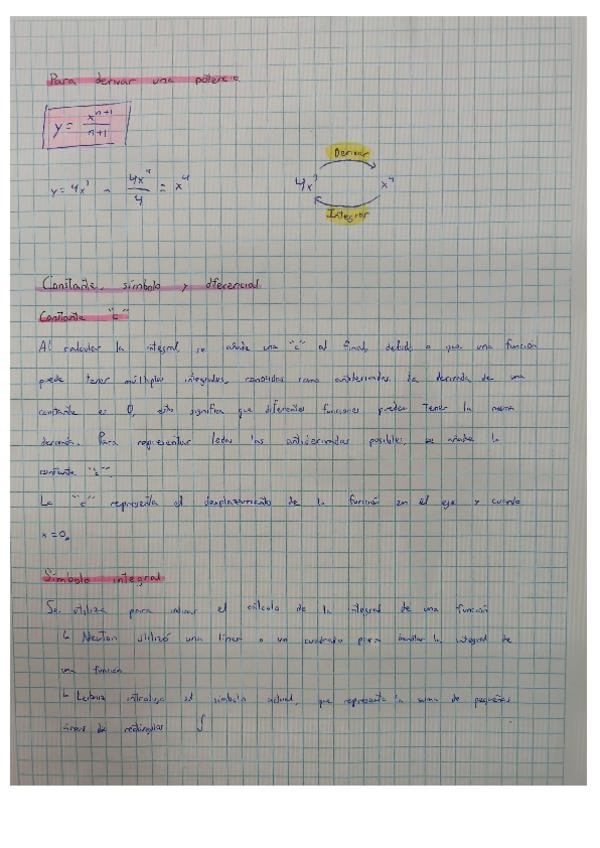 Para derivar una potencia
y = x^(n+1) / (n+1)
Derivar
y = 4x³ → 4x⁴ / 4 = x⁴
4x³ x⁴
Integrar
Constante, símbolo y diferencial
Constante "c"
Al calcular la integral, se añade una "c" al final, debido a que una función
puede tener múltiples integrales, conocidas como antiderivadas. La derivada de una
constante es 0, esto significa que diferentes funciones pueden tener la misma
derivada. Para representar todas las antiderivadas posibles, se añade la
constante "c".
La "c" representa el desplazamiento de la función en el eje y cuando
x = 0.
Símbolo integral
Se utiliza para indicar el cálculo de la integral de una función
↳ Newton utilizó una línea o un cuadrado para la integral de
una función
↳ Leibniz introdujo el símbolo actual, que representa la suma de pequeñas
áreas de rectángulos ∫